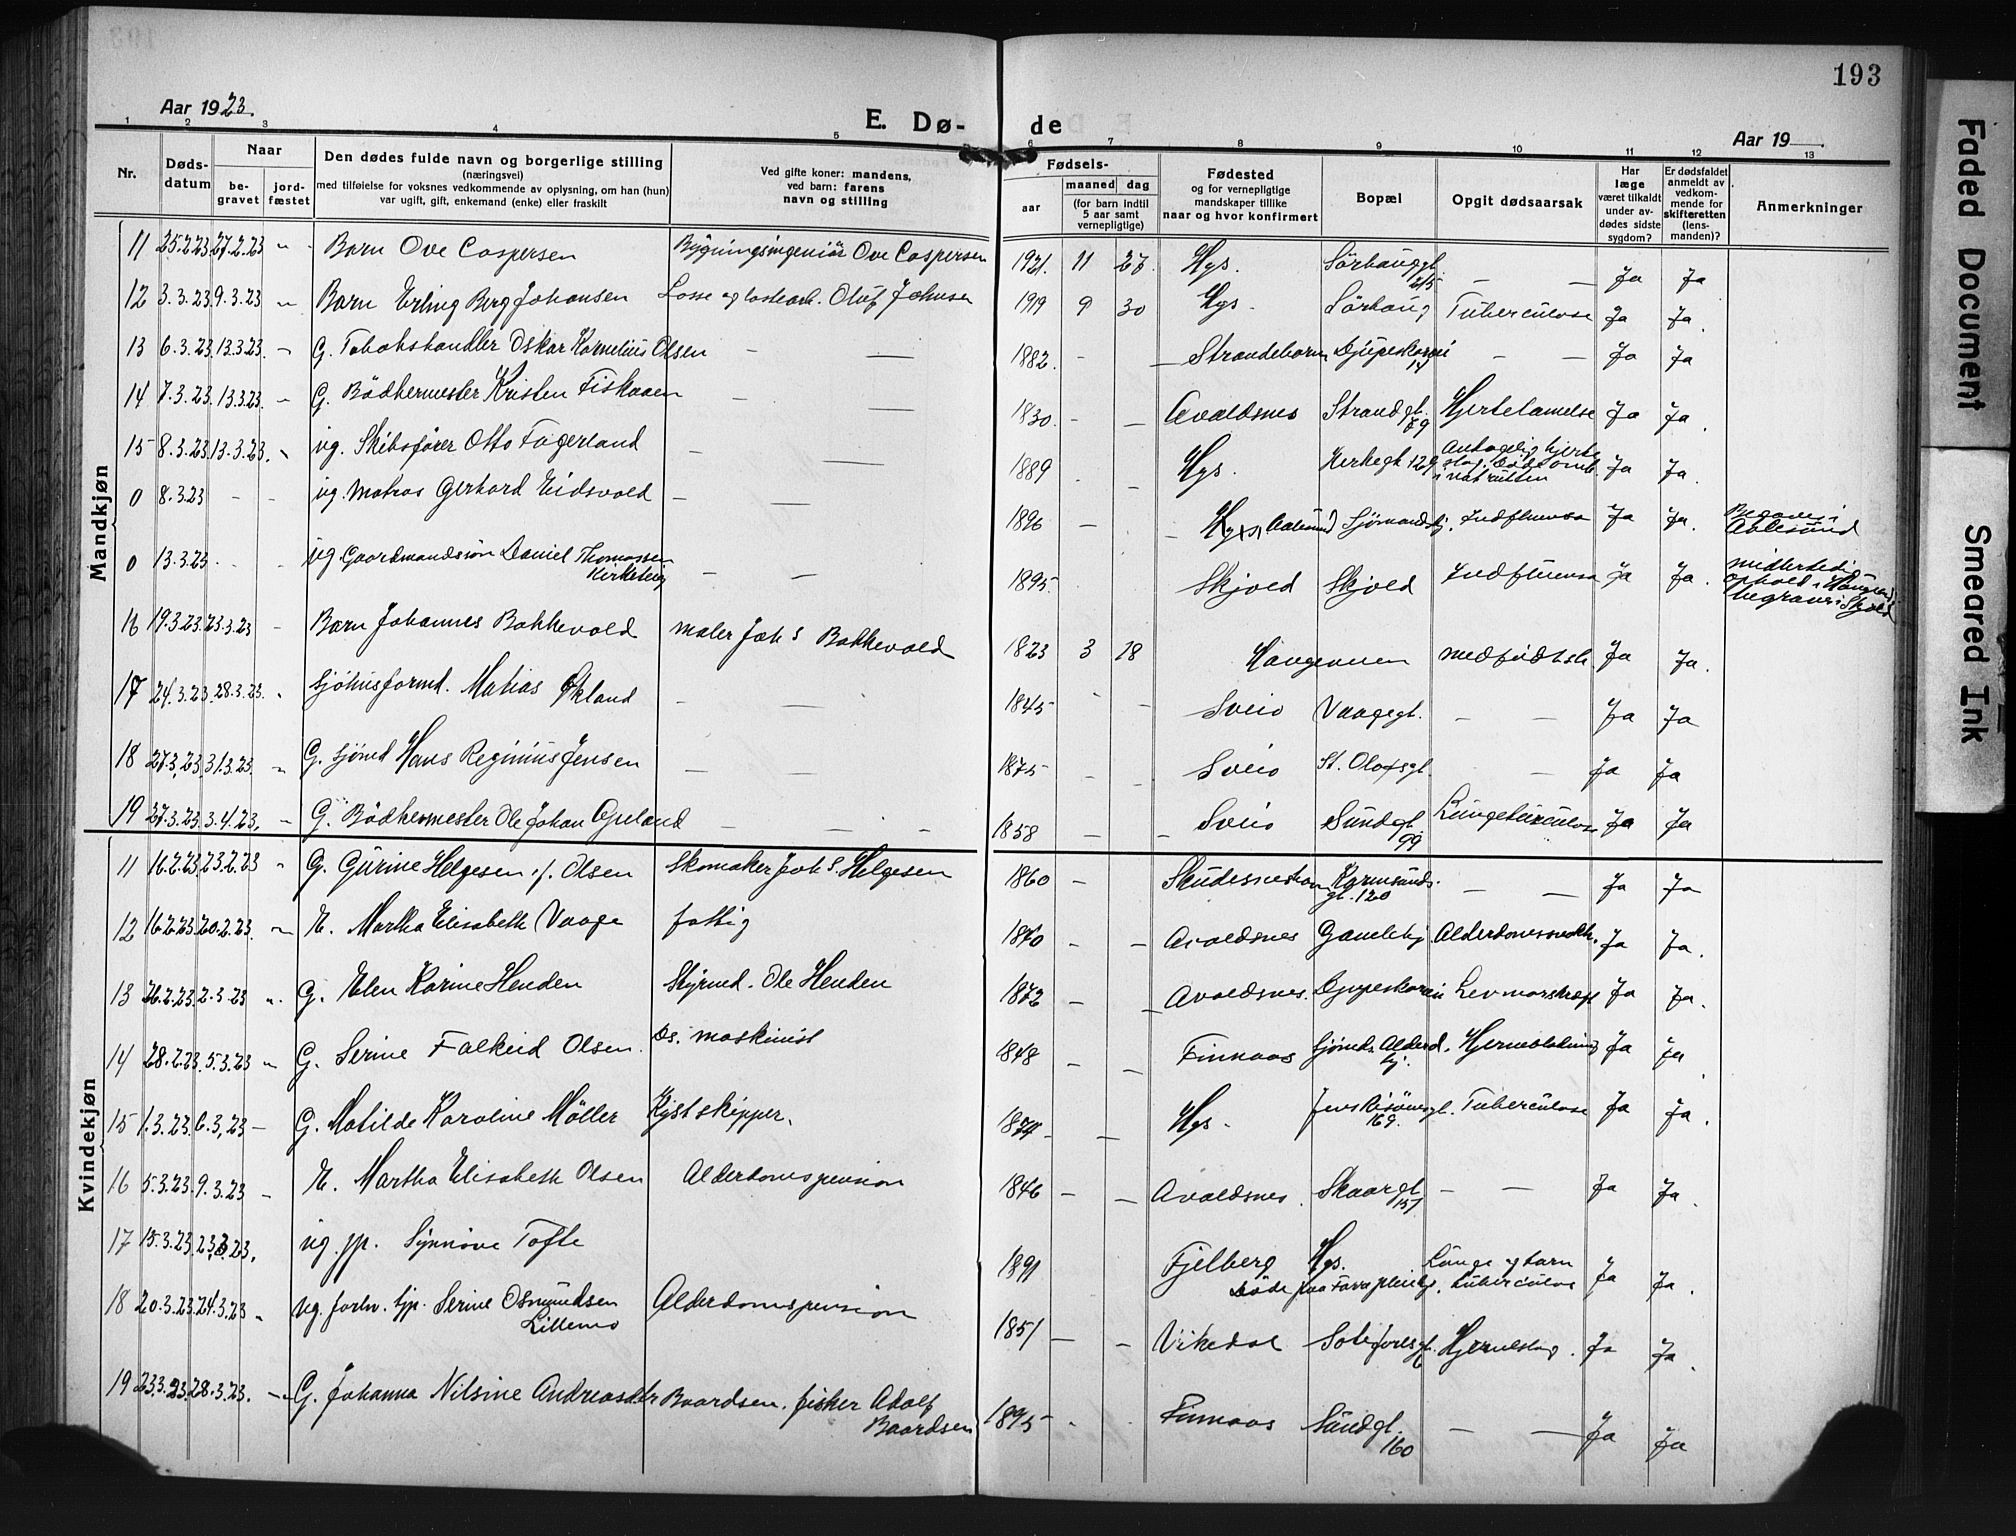 193
Aar 1923.
E. Dø-
de
Aar 19
1 2 3 4 5 6 7 8 9 10 11 12 13
Nr.
Døds-
datum
Naar
be-
gravet
jord-
fæstet
Den dødes fulde navn og borgerlige stilling
(næringsvei)
med tilføielse for voksnes vedkommende av oplysning, om han (hun)
var ugift, gift, enkemand (enke) eller fraskilt
Ved gifte koner: mandens,
ved barn: farens
navn og stilling
Fødsels-
aar
maaned
dag
(for barn indtil
5 aar samt
vernepligtige)
Fødested
og for vernepligtige
mandskaper tillike
naar og hvor konfirmert
Bopæl
Opgit dødsaarsak
Har
læge
været tilkaldt
under av-
dødes sidste
sygdom?
Er dødsfaldet
anmeldt av
vedkom-
mende for
skifteretten
(lens-
manden)?
Anmerkninger
Mandkjøn
11 25.2.23 27.2.23 " Barn Ove Caspersen Bygningsingeniör Ove Caspersen 1921. 11 27. Hgs. Sörhauggt. 215 — — Ja Ja
12 3.3.23 9.3.23 " Barn Erling Berg Johansen Losse og lastearb. Oluf Johnsen 1919 9 30 Hgs. Sörhaug Tuberculose Ja Ja.
13 6.3.23 13.3.23. " G. Tobakshandler Oskar Kornelius Olsen — — 1882. - — Strandebarm Djupeskarvei 14 — — Ja Ja
14 7.3.23. 13.3.23. " G. Bödkermester Kristen Fiskaaen — — 1830. - — Avaldsnes Strandgt. 79 Hjertelamelse Ja Ja.
15 8.3.23 13.3.23. " ug. Skibsfører Otto Fagerland — — 1889 - — Hgs. Kirkegt 129 Antagelig hjerte slag. Døde omb. i natrutten Ja Ja.
0 8.3.23 - - ug. Matros Gerhard Eidsvold — — 1896 - — Hgs, Aalesund Sjömandshj. Indfluensa Ja Ja. Begraves i
Aalesund
0 13.3.23. - - ug. Gaardmandssön Daniel Thomassen
Kirkeleig — — 1895. Skjold Skjold Indfluensa Ja Ja. midlertidig
ophold i Haugesund
begraves i Skjold
16 19.3.23. 23.3.23 - Barn Johannes Bakkevold maler Johs Bakkevold 1823 3 18 Haugesund medfødt sk Ja Ja.
17 24.3.23. 28.3.23. " Sjöhusformd. Matias Økland — — 1845 - — Sveio Vaagegt. — — Ja Ja
18 27.3.23. 31.3.23. " G. Sjömd Hans Reginius Jensen — — 1875 - - Sveio St. Olafsgt. - — Ja Ja
19 27.3.23. 3.4.23. " G. Bödkermester Ole Johan Apeland — — - 1858 — — Sveio Sundgt. 99 Lungetuberculose Ja Ja
Kvindekjøn
11 16.2.23 23.2.23 " G. Gurine Helgesen f. Olsen Skomaker Johs. Helgesen 1860 - Skudeneshavn Karmsunds-
gt. 120 — — Ja Ja
12 16.2.23 20.2.23. " E. Martha Elisabeth Vaage fattig 1870 - — Avaldsnes Gamlehj Alderdomssvakh. Ja Ja.
13 26.2.23 2.3.23 " G. Elen Karine Henden Styrmd. Ole Henden 1872 - — Avaldsnes. Djupeskarvei Levmarskræft Ja Ja.
14 28.2.23. 5.3.23 " G. Serine Falkeid Olsen. Ds. maskinist 1848 — — Finnaas Sjömds Alderd.
hj. Hjerneblødning Ja Ja
15 1.3.23. 6.3.23 — G. Matilde Karoline Möller Kystskipper. 1874 — Hgs. Jens Risöensgt.
169. Tuberculose Ja Ja.
16 5.3.23. 9.3.23 - E. Martha Elisabeth Olsen Alderdomspension 1846 — — Avaldsnes. Skaargt 151 — — Ja Ja.
17 15.3.23 23.3.23. ug. pp. Synnöve Tofte 1891 Fjelberg Hgs. Lunge og tarm
Döde paa Pleiehj. tuberculose Ja Ja.
18 20.3.23. 24.3.23 " ug. forhv. tjp. Serine Osmundsen
Lillemo Alderdomspension 1851 — — Vikedal Sorhaugsgt. Hjerneslag. Ja Ja.
19 23.3.23. 28.3.23. — G. Johanna Nilsine Andreasdtr Baardsen. fisker Adolf
Baardsen 1895 - - Finnaas Sundgt.
160 — — Ja Ja
Faded Document
Smeared Ink